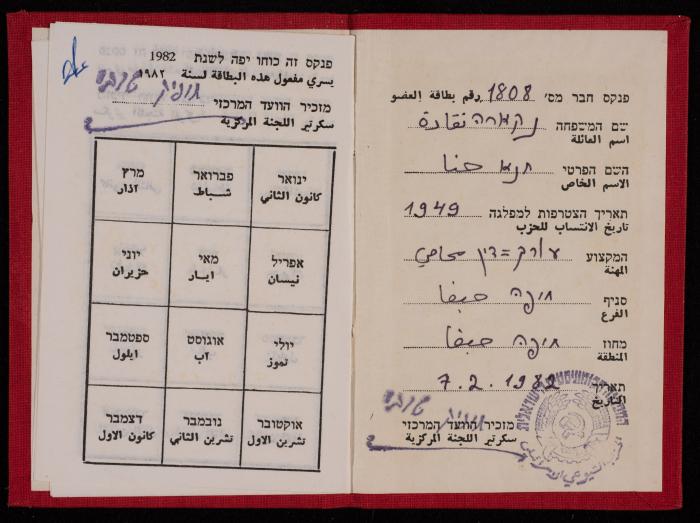 פנקס חבר מס' 1808 رقم بطاقة العضو
שם המשפחה נקארה نقارة
اسم العائلة
השם הפרטי חנא حنا
الاسم الخاص
תאריך הצטרפות למפלגה 1949
تاريخ الانتساب للحزب
המקצוע עורך=דין محامي
المهنة
סניף חיפה حيفا
الفرع
מחוז חיפה حيفا
المنطقة
תאריך 7.2.1982
التاريخ
תופיק טובי
מזכיר הוועד המרכזי
سكرتير اللجنة المركزية
פנקס זה כוחו יפה לשנת 1982
يسري مفعول هذه البطاقة لسنة ١٩٨٢
תופיק טובי
מזכיר הוועד המרכזי
سكرتير اللجنة المركزية
ינואר פברואר מרץ
كانون الثاني شباط آذار
אפריל מאי יוני
نيسان ايار حزيران
יולי אוגוסט ספטמבר
تموز آب ايلول
אוקטובר נובמבר דצמבר
تشرين الاول تشرين الثاني كانون الاول